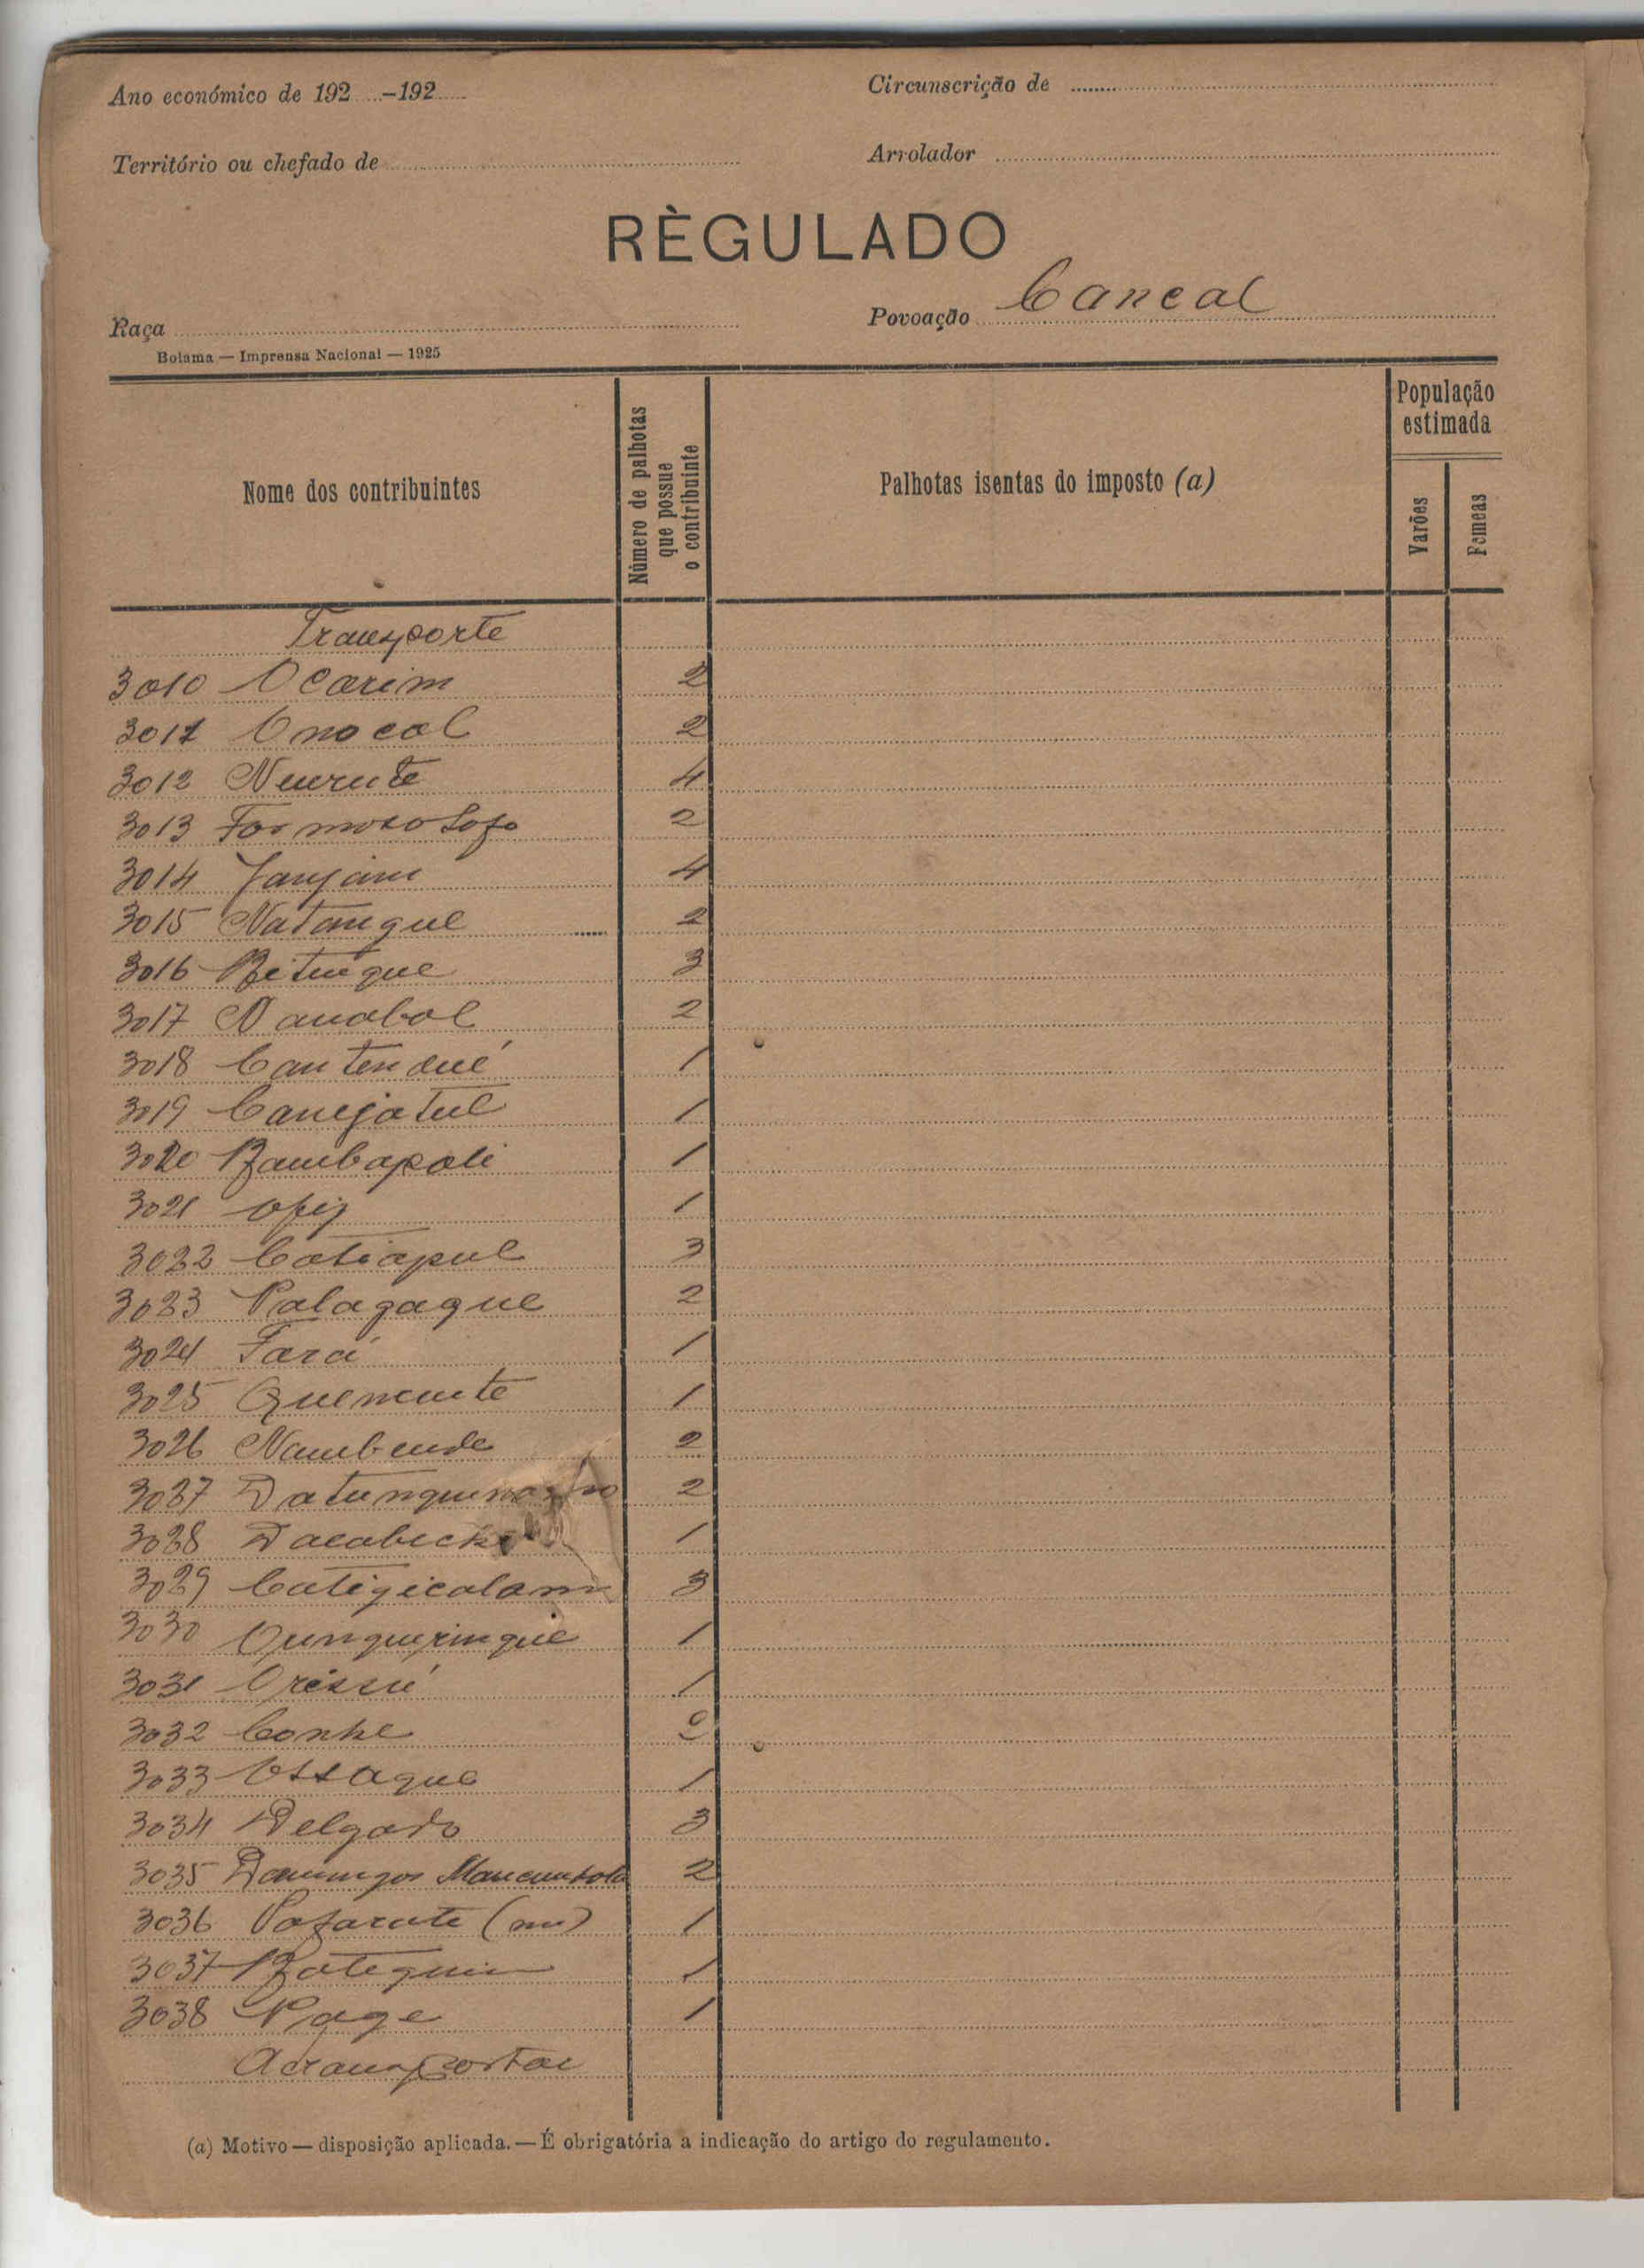 Ano económico de 192.....-192.....
Circunscrição de
Território ou chefado de
Arrolador
RÈGULADO
Raça
Povoação Caneal
Bolama — Imprensa Nacional — 1925
Nome dos contribuintes
Número de palhotas que possue o contribuinte
Palhotas isentas do imposto (a)
População estimada
Varões
Femeas
Transporte
3010 Ocarim 2
3011 Onocal 2
3012 4
3013 Formoso Lofo 2
3014 Janjam 4
3015 Natangue 2
3016 Betingue 3
3017 Nanabol 2
3018 1
3019 Canejatul 1
3020 Bambapoli 1
3021 1
3022 Catiapul 3
3023 Palagaque 2
3024 Fará 1
3025 1
3026 2
3027 2
3028 1
3029 3
3030 1
3031 Oressú 1
3032 Conhe 2
3033 Ossaque 1
3034 Delgado 3
3035 Domingos 2
3036 1
3037 Botequim 1
3038 Page 1
A transportar
(a) Motivo — disposição aplicada. — É obrigatória a indicação do artigo do regulamento.